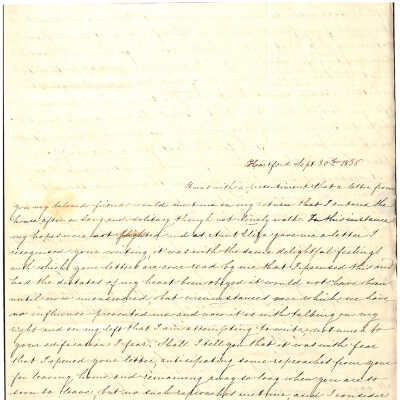 Hartford Sept 30th 1835
It was with a presentiment that a letter from
you my beloved friend would meet me on my return that I entered the
house after a long and solitary though not lonely walk. In this instance
my hopes were not and as Aunt Eliza gave me a letter I
recognised your writing, it was with the same delightful feelings
with which your letters are ever read by me that I perused this and
had the dictates of my heart been obeyed it would not have been
until now unanswered, but circumstances over which we have
no influence prevented me and now it is with talking on my
right and on my left that I am attempting to write, not much to
your edification I fear. Shall I tell you that it was with fear
that I opened your letter, anticipating some reproaches from you
for leaving home and remaining away so long when you are so
soon to leave, but no such reproaches met me, and I consider